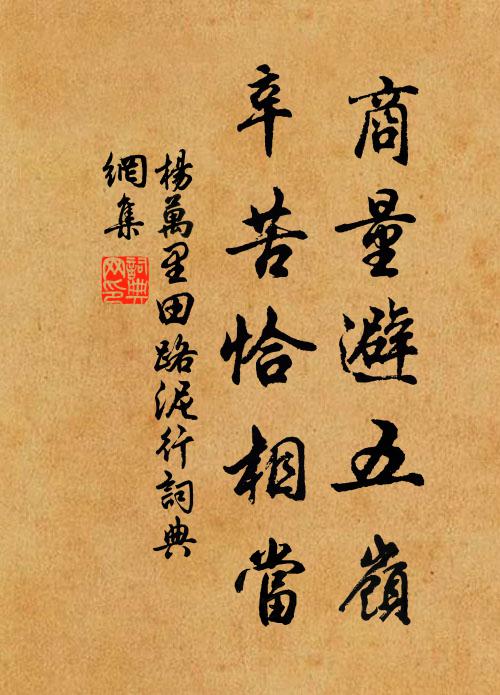 商量避五嶺
辛苦恰相當
楊萬里田路泥行詞典
網集
詞典網印